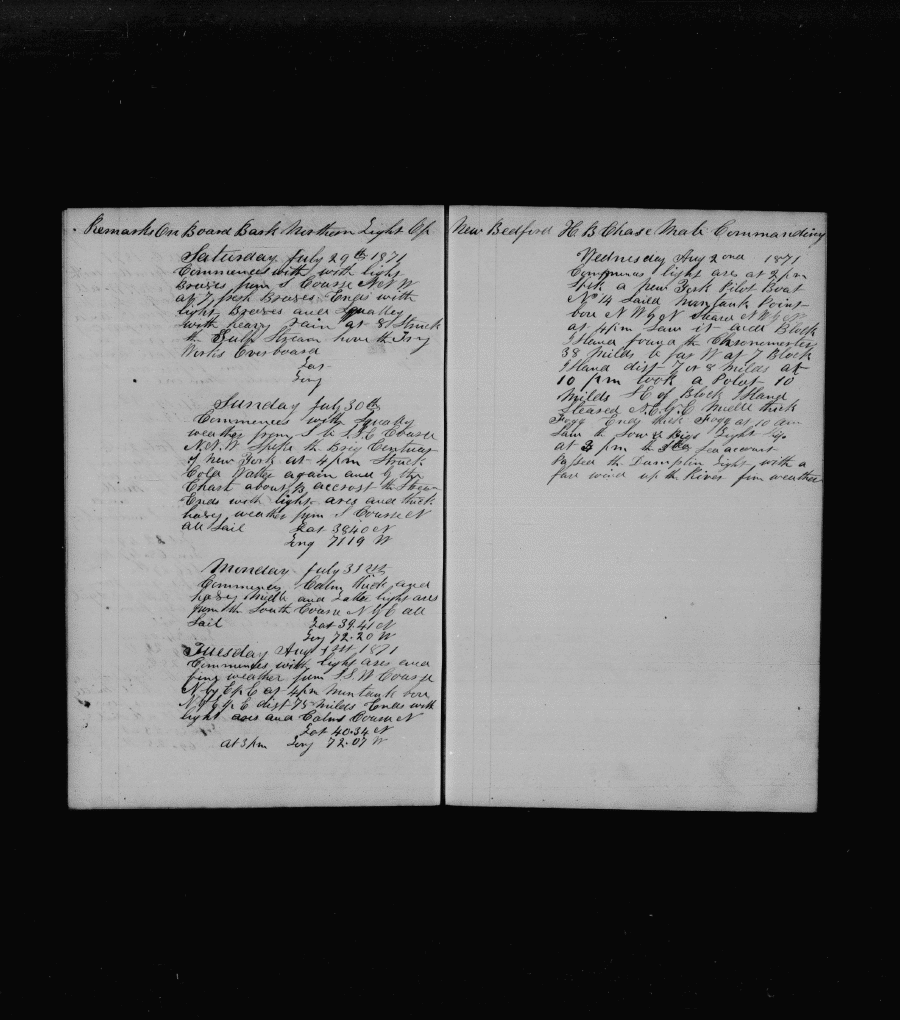 Remarks On Board Bark Northern Light Of
Saturday July 29th 1871
Commences with with light
Breezes from S Course N N W
at 7 fresh Breezes Ends with
light Breezes and Squalley
with heavy rain at 8 Struck
the Gulf Stream hove the Try
Works Overboard
Lat
Long
Sunday July 30th
Commences with Squally
weather from S to S.S.E Course
N.N.W Spoke the Brig Century
of New York at 4 pm Struck
Cold Water again and by the
Chart about accrost the Stream
Ends with light ares and thick
hasey weather from S Course N
all Sail Lat 38 40 N
Long 71 19 W
Monday July 31st
Commences Calm thick and
hasey Midle and Latter light ares
from the South Course N by E all
Sail Lat 39.41 N
Long 72.20 W
Tuesday Aug 1st 1871
Commences with light ares and
fine weather from S.S.W Course
N by E at 4 pm Muntauk bore
N dist 75 milds Ends with
light ares and Calms Course N
Lat 40.34 N
at 3 pm Long 72.07 W
New Bedford H B Chase Mate Commanding
Wednesday Aug 2ond 1871
Commences light ares at 2 pm
Spok a New York Pilot Boat
No 14 Saild Muntauk Point
bore N W by N Steard N W by N
at 4 pm Saw it and Block
Island found the Chronometer
38 Milds to far W at 7 Block
Island dist 7 or 8 milds at
10 pm took a Polut 10
milds S E of Block Island
Steared N.E. Midle thick
Fogg Ends thick Fogg at 10 am
Saw the Sow & Pigs Light Ship
at pm the
Passed the Dumplin Light with a
fair wind up the River fine weather